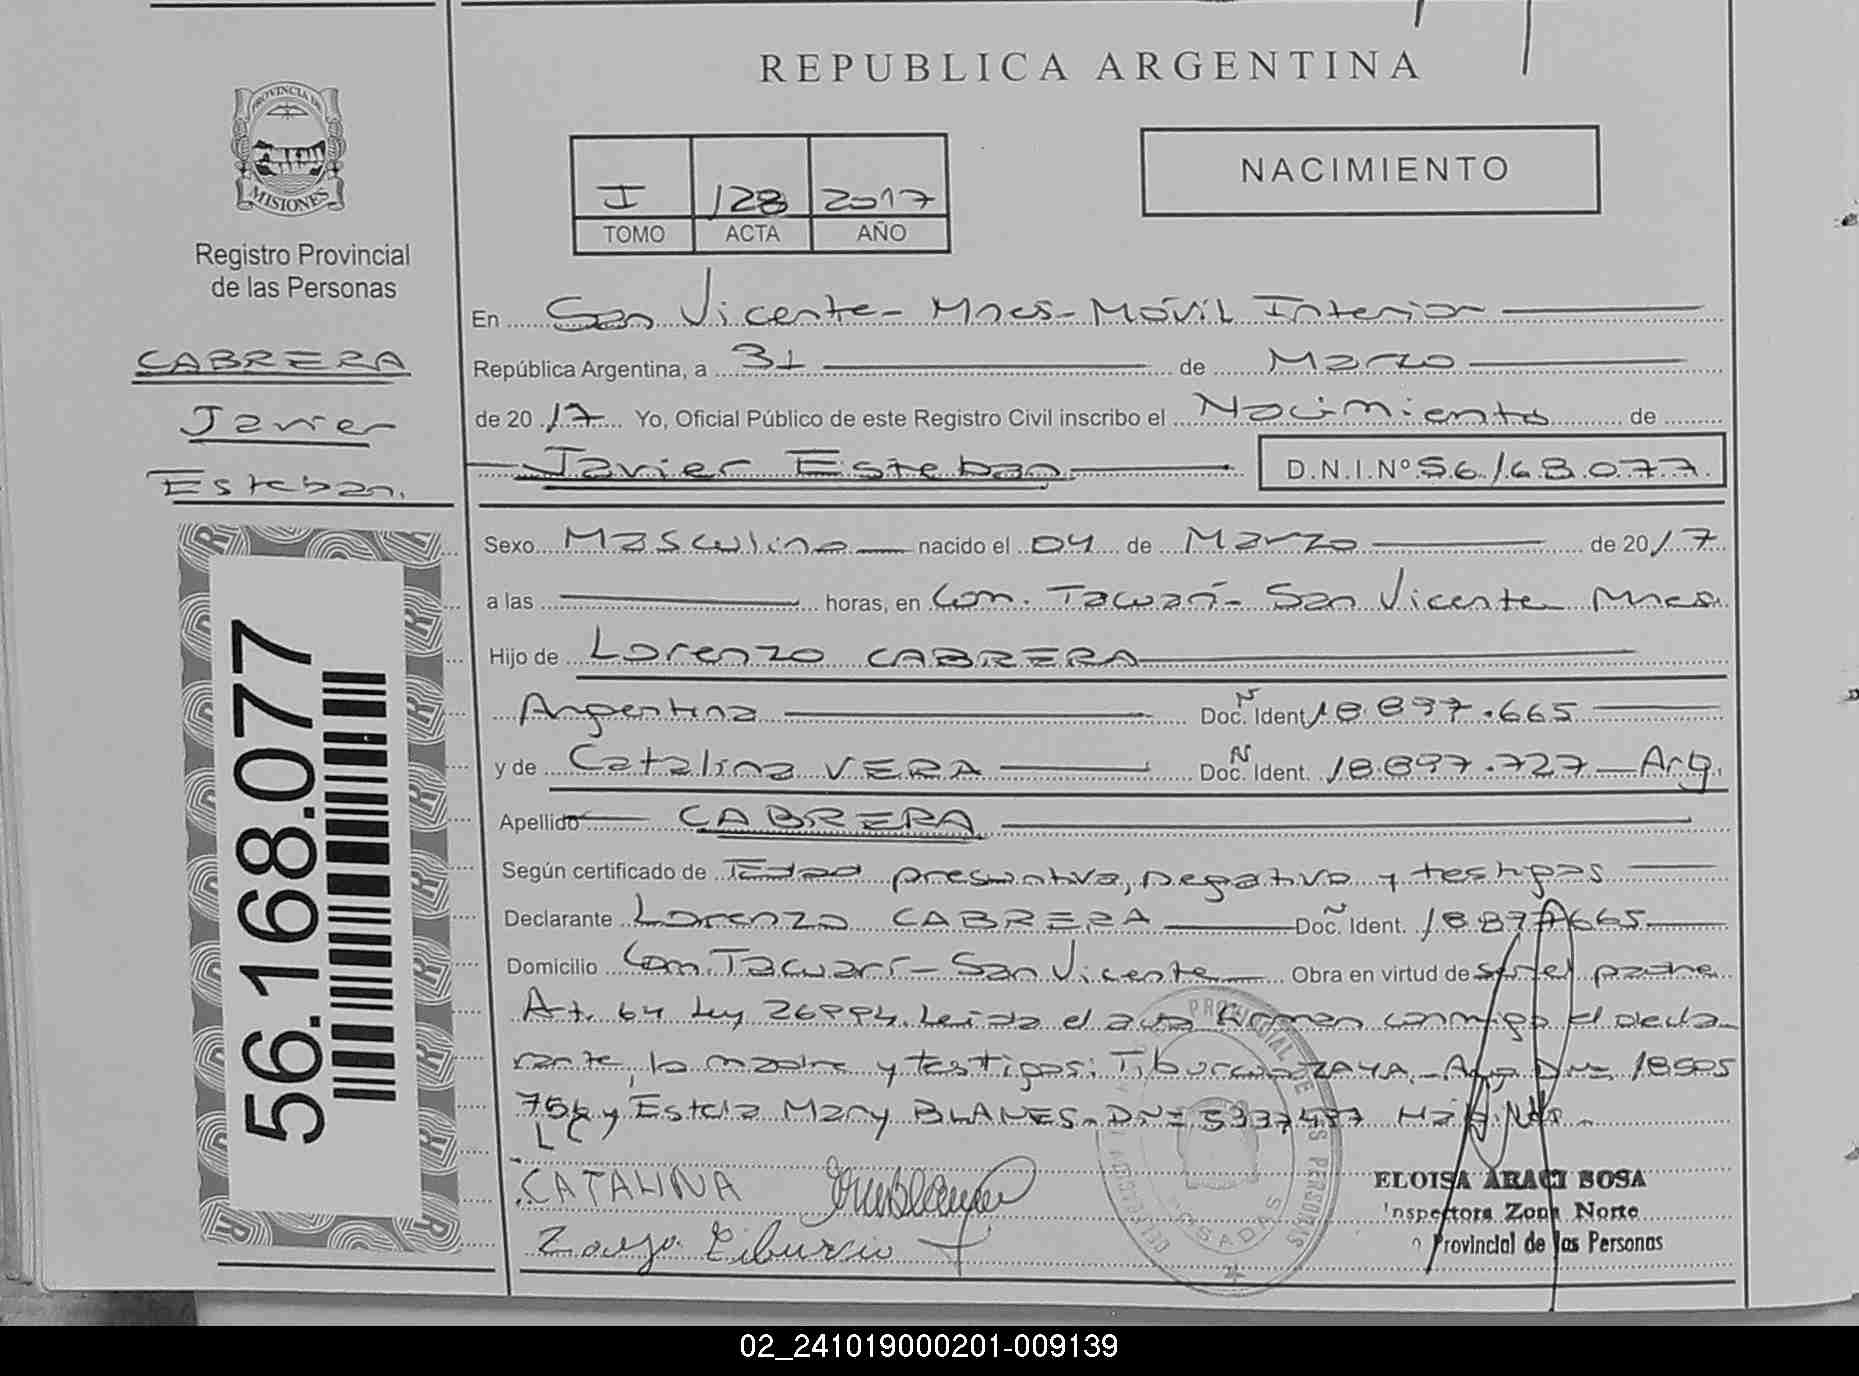 REPUBLICA ARGENTINA
PROVINCIA DE
MISIONES
Registro Provincial
de las Personas
I 128 2017
TOMO ACTA AÑO
NACIMIENTO
CABRERA
Javier
Esteban.
56.168.077
En San Vicente - Mnes - Móvil Interior
República Argentina, a 31 de Marzo
de 20 17 Yo, Oficial Público de este Registro Civil inscribo el Nacimiento de
Javier Esteban D.N.I.Nº 56.168.077.
Sexo Masculino nacido el 04 de Marzo de 20 17
a las horas, en Com. Tacuarí - San Vicente Mnes.
Hijo de Lorenzo CABRERA
Argentina Doc. Ident. 18.897.665
y de Catalina VERA Doc. Ident. 18.897.727 Arg.
Apellido CABRERA
Según certificado de Edad presuntiva, negativo y testigos
Declarante Lorenzo CABRERA Doc. Ident. 18.897.665
Domicilio Com. Tacuarí - San Vicente Obra en virtud de ser el padre
Art. 64 Ley 26994. Leida el acta firman conmigo el decla-
rante, la madre y testigos: Tiburcio ZAYA - Arg. DNI 18505
756 y Estela Mary BLANES - DNI 5337487
LC
CATALINA
Zaya Tiburcio
POSADAS
ELOISA ARACI SOSA
Inspectora Zona Norte
Provincial de las Personas
02_241019000201-009139